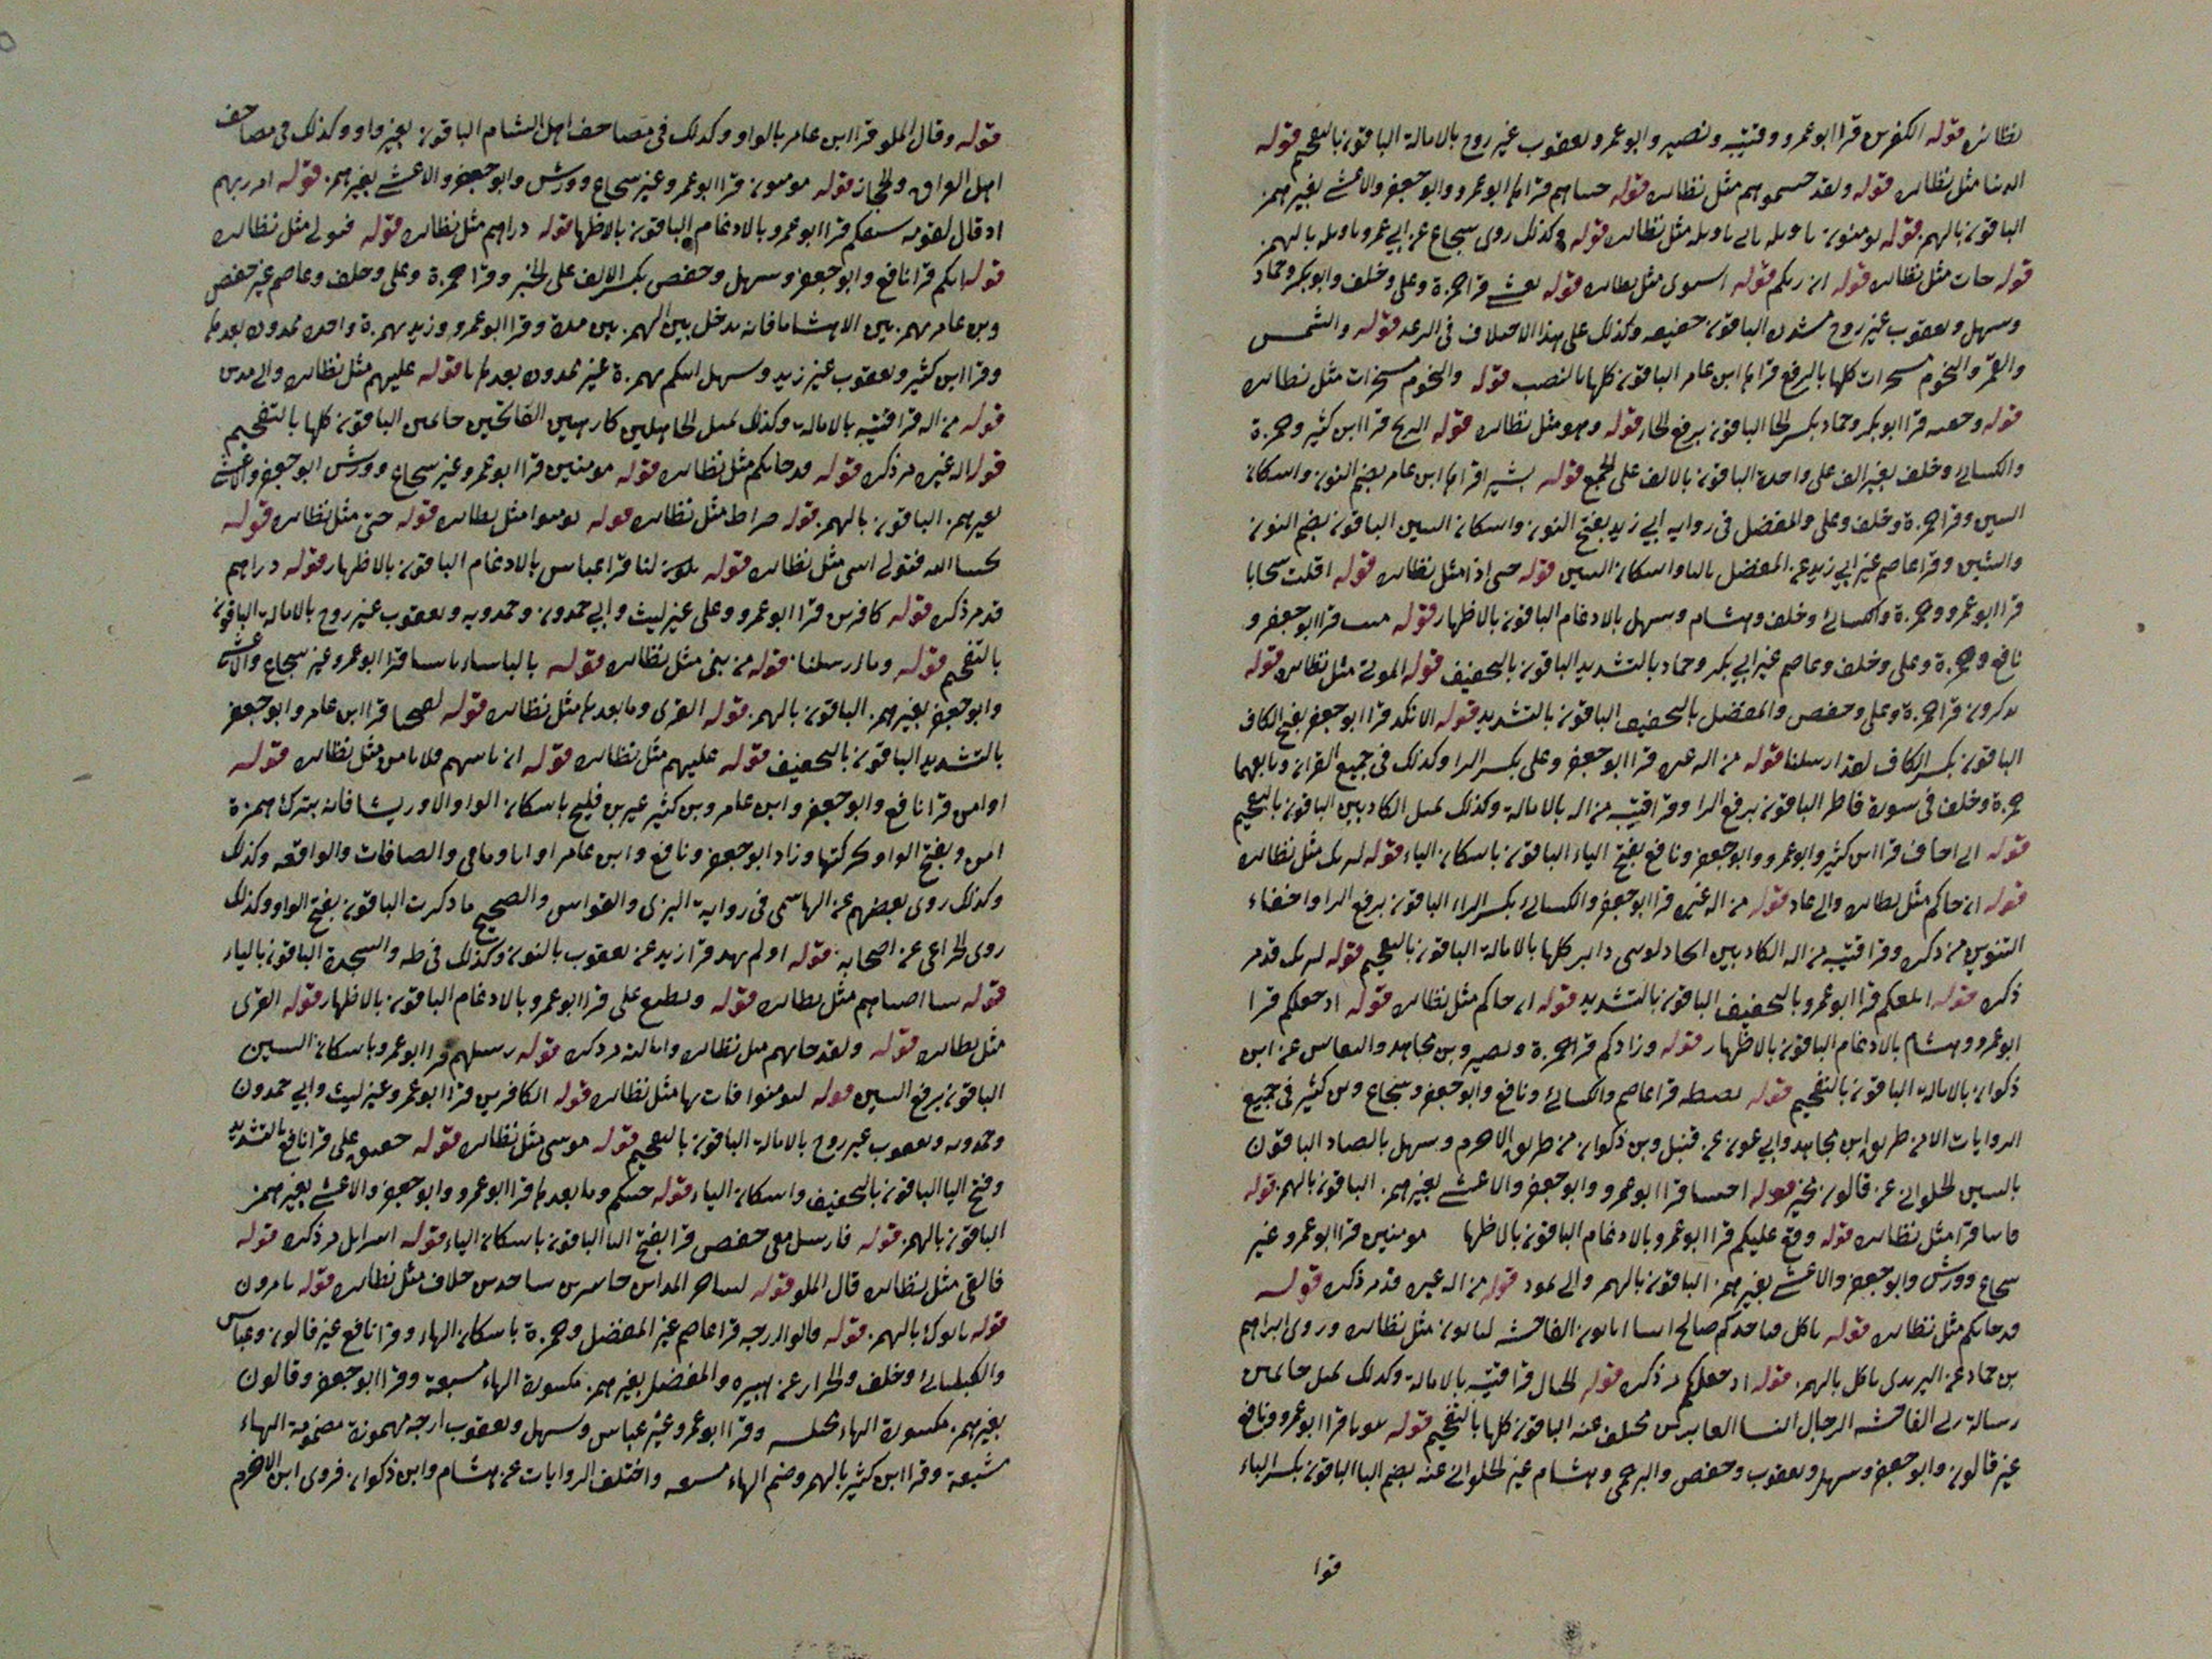 نظائره قوله الكفرين قرا ابو عمرو وقتيبه ونصير وابو عمرو ويعقوب غير روح بالامالة الباقون بالتفخيم قوله
الدنيا مثل نظائره قوله ولقد جئناهم مثل نظائره قوله قراها ابو عمرو وابو جعفر والاعشى بغير همز
الباقون بالهمز قوله يومنون تاويله ياتي تاويله مثل نظائره قوله وكذلك روى شجاع عن ابي عمرو تاويله بالهمز
قوله جات مثل نظائره قوله ان ربكم قوله استوى مثل نظائره قوله يغشى قرا حمزة وعلى وخلف وابو بكر وحماد
وسهل ويعقوب غير روح مشدده الباقون خفيفه وكذلك على هذا الاختلاف فى الرعد قوله والشمس
والقمر والنجوم مسخرات كلها بالرفع قراها ابن عامر الباقون كلها بالنصب قوله والنجوم مسخرات مثل نظائره
قوله وخفيه قرا ابو بكر وحماد بكسر الخا الباقون برفع الخا قوله وهو مثل نظائره قوله الريح قرا ابن كثير وحمزة
والكسائى وخلف بغير الف على واحدة الباقون بالالف على الجمع قوله بشرا قراها ابن عامر بضم النون واسكان
السين وقرا حمزة وخلف وعلى والمفضل فى روايه ابي زيد بفتح النون واسكان السين الباقون بضم النون
والشين وقرا عاصم غير ابي زيد عن المفضل بالبا واسكان الشين قوله حتى اذا مثل نظائره قوله اقلت سحابا
قرا ابو عمرو وحمزة والكسائى وخلف وهشام وسهل بالادغام الباقون بالاظهار قوله ميت قرا ابو جعفر و
نافع وحمزة وعلى وخلف وعاصم غير ابي بكر وحماد بالتشديد الباقون بالتخفيف قوله الموتى مثل نظائره قوله
تذكرون قرا حمزة وعلى وحفص والمفضل بالتخفيف الباقون بالتشديد قوله الا نكدا قرا ابو جعفر بفتح الكاف
الباقون بكسر الكاف لقد ارسلنا قوله من اله غيره قرا ابو جعفر وعلى بكسر الرا وكذلك فى جميع القران وتابعهما
حمزة وخلف فى سورة فاطر الباقون برفع الرا وقرا قتيبه من اله بالامالة وكذلك الكاذبين الباقون بالتفخيم
قوله اني اخاف قرا ابن كثير وابو عمرو وابو جعفر ونافع بفتح الياء الباقون باسكان الياء قوله لنريك مثل نظائره
قوله ان جاكم مثل نظائره والى عاد قوله من اله غيره قرا ابو جعفر والكسائى بكسر الراء الباقون برفع الرا واخفاء
التنوين من ذكره وقرا قتيبه من اله الكاذبين دابر كلها بالامالة الباقون بالتفخيم قوله لنريك قد مر
ذكره قوله ابلغكم قرا ابو عمرو بالتخفيف الباقون بالتشديد قوله ان جاكم مثل نظائره قوله اذ جعلكم قرا
ابو عمرو وهشام بالادغام الباقون بالاظهار قوله وزادكم قرا حمزة ونصير وبن مجاهد والنقاش عن ابن
ذكوان بالامالة الباقون بالتفخيم قوله بصطه قرا عاصم والكسائى ونافع وابو جعفر وشجاع وبن كثير فى جميع
الروايات الا من طريق ابن مجاهد وابي عون عن قنبل وبن ذكوان من طريق الاخرم وسهل بالصاد الباقون
بالسين الحلواني عن قالون مخير قوله اجئتنا قرا ابو عمرو وابو جعفر والاعشى بغير همز الباقون بالهمز قوله
مثل نظائره قوله وقع عليكم قرا ابو عمرو بالادغام الباقون بالاظها مومنين قرا ابو عمرو غير
شجاع وورش وابو جعفر والاعشى بغير همز الباقون بالهمز والى ثمود قوله من اله غيره قد مر ذكره قوله
قد جاتكم مثل نظائره قوله تاكل فياخذكم صالح ايتنا اتاتون الفاحشه لتاتون مثل نظائره وروى ابراهيم
بن حماد عن اليزيدى تاكل بالهمز قوله اذ جعلكم مر ذكره قوله الجبال قرا قتيبه بالامالة وكذلك جاثمين
رسالة ربي الفاحشه الرجال النسا الغابرين مختلف عنه الباقون كلها بالتفخيم قوله بيوتا قرا ابو عمرو ونافع
غير قالون وابو جعفر وسهل ويعقوب وحفص والبرجمى وهشام غير الحلواني عنه بضم البا الباقون بكسر الباء
قوا
قوله وقال الملو قرا ابن عامر بالواو وكذلك فى مصاحف اهل الشام الباقون بغير واو وكذلك فى مصاحف
اهل العراق والحجاز قوله مومنون قرا ابو عمرو غير شجاع وورش وابو جعفر والاعشى بغير همز قوله امر ربهم
اذ قال لقومه سبقكم قرا ابو عمرو بالادغام الباقون بالاظها قوله دارهم مثل نظائره قوله فتولى مثل نظائره
قوله انكم قرا نافع وابو جعفر وسهل وحفص بكسر الالف على الخبر وقرا حمزة وعلى وخلف وعاصم غير حفص
وبن عامر بهمزتين الا هشاما فانه يدخل بين الهمزتين مدة وقرا ابو عمرو وزيد بهمزة واحده ممدوده بعدها يا
وقرا ابن كثير ويعقوب غير زيد وسهل اينكم بهمزة غير ممدوده بعدها يا قوله عليهم مثل نظائره والى مدين
قوله من اله قرا قتيبه بالامالة وكذلك الجاهلين كارهين الفاتحين جاثمين الباقون كلها بالتفخيم
قوله اله غيره مر ذكره قوله قد جاتكم مثل نظائره قوله مومنين قرا ابو عمرو غير شجاع وورش ابو جعفر والاعشى
بغير همز الباقون بالهمز قوله صراط مثل نظائره قوله يومنوا مثل نظائره قوله حتى مثل نظائره قوله
نجينا الله فتولى اسى مثل نظائره قوله يكون لنا قرا عباس بالادغام الباقون بالاظهار قوله دارهم
قد مر ذكره قوله كافرين قرا ابو عمرو وعلى غير ليث وابي حمدون وحمدويه ويعقوب غير روح بالامالة الباقون
بالتفخيم قوله وما ارسلنا قوله من نبى مثل نظائره قوله بالباساء باسنا قرا ابو عمرو غير شجاع والاعشى
وابو جعفر بغير همز الباقون بالهمز قوله القرى وما بعدها مثل نظائره قوله لفتحنا قرا ابن عامر وابو جعفر
بالتشديد الباقون بالتخفيف قوله عليهم مثل نظائره قوله ان ياتيهم فلا يامن مثل نظائره قوله
اوامن قرا نافع وابو جعفر وابن عامر وبن كثير غير بن فليح باسكان الواو الا ورشا فانه يترك همزة
امن ويفتح الواو بحركتها وزاد ابو جعفر ونافع وابن عامر او اباونا فى والصافات والواقعه وكذلك
وكذلك روى بعضهم عن الهاشمى فى رواية البزى والقواس والصحيح ما ذكرت الباقون بفتح الواو وكذلك
روى الخزاعى عن اصحابه قوله اولم يهد قرا زيد عن يعقوب بالنون وكذلك فى طه والسجدة الباقون بالياء
قوله نشا اصبناهم مثل نظائره قوله ونطبع على قرا ابو عمرو بالادغام الباقون بالاظهار قوله القرى
مثل نظائره قوله ولقد جاتهم مثل نظائره وامالته مر ذكره قوله رسلهم قرا ابو عمرو باسكان السين
الباقون برفع السين قوله ليومنوا فات بها مثل نظائره قوله الكافرين قرا ابو عمرو غير ليث وابي حمدون
وحمدويه ويعقوب غير روح بالامالة الباقون بالتفخيم قوله موسى مثل نظائره قوله حقيق على قرا نافع بالتشديد
وفتح اليا الباقون بالتخفيف واسكان الياء قوله جئتكم وما بعدها قرا ابو عمرو وابو جعفر والاعشى بغير همز
الباقون بالهمز قوله فارسل معى حفص قرا بفتح اليا الباقون باسكان الياء قوله اسرايل مر ذكره قوله
فالقى مثل نظائره قال الملو قوله لساحر المداين حاشرين ساجدين خلاف مثل نظائره قوله تامرون
قوله ياتوك بالهمز قوله قالوا ارجه قرا عاصم غير المفضل وحمزة باسكان الهاء وقرا نافع غير قالون وعباس
والكسائى وخلف والخزاز عن هبيره والمفضل بغير همز مكسورة الهاء مشبعة وقرا ابو جعفر وقالون
بغير همز مكسورة الهاء مختلسه وقرا ابو عمرو غير عباس وسهل ويعقوب ارجه مهموزة مضمومة الهاء
مشبعة وقرا ابن كثير بالهمز وضم الهاء مشبعه واختلف الروايات عن هشام وابن ذكوان فروى ابن الاخرم